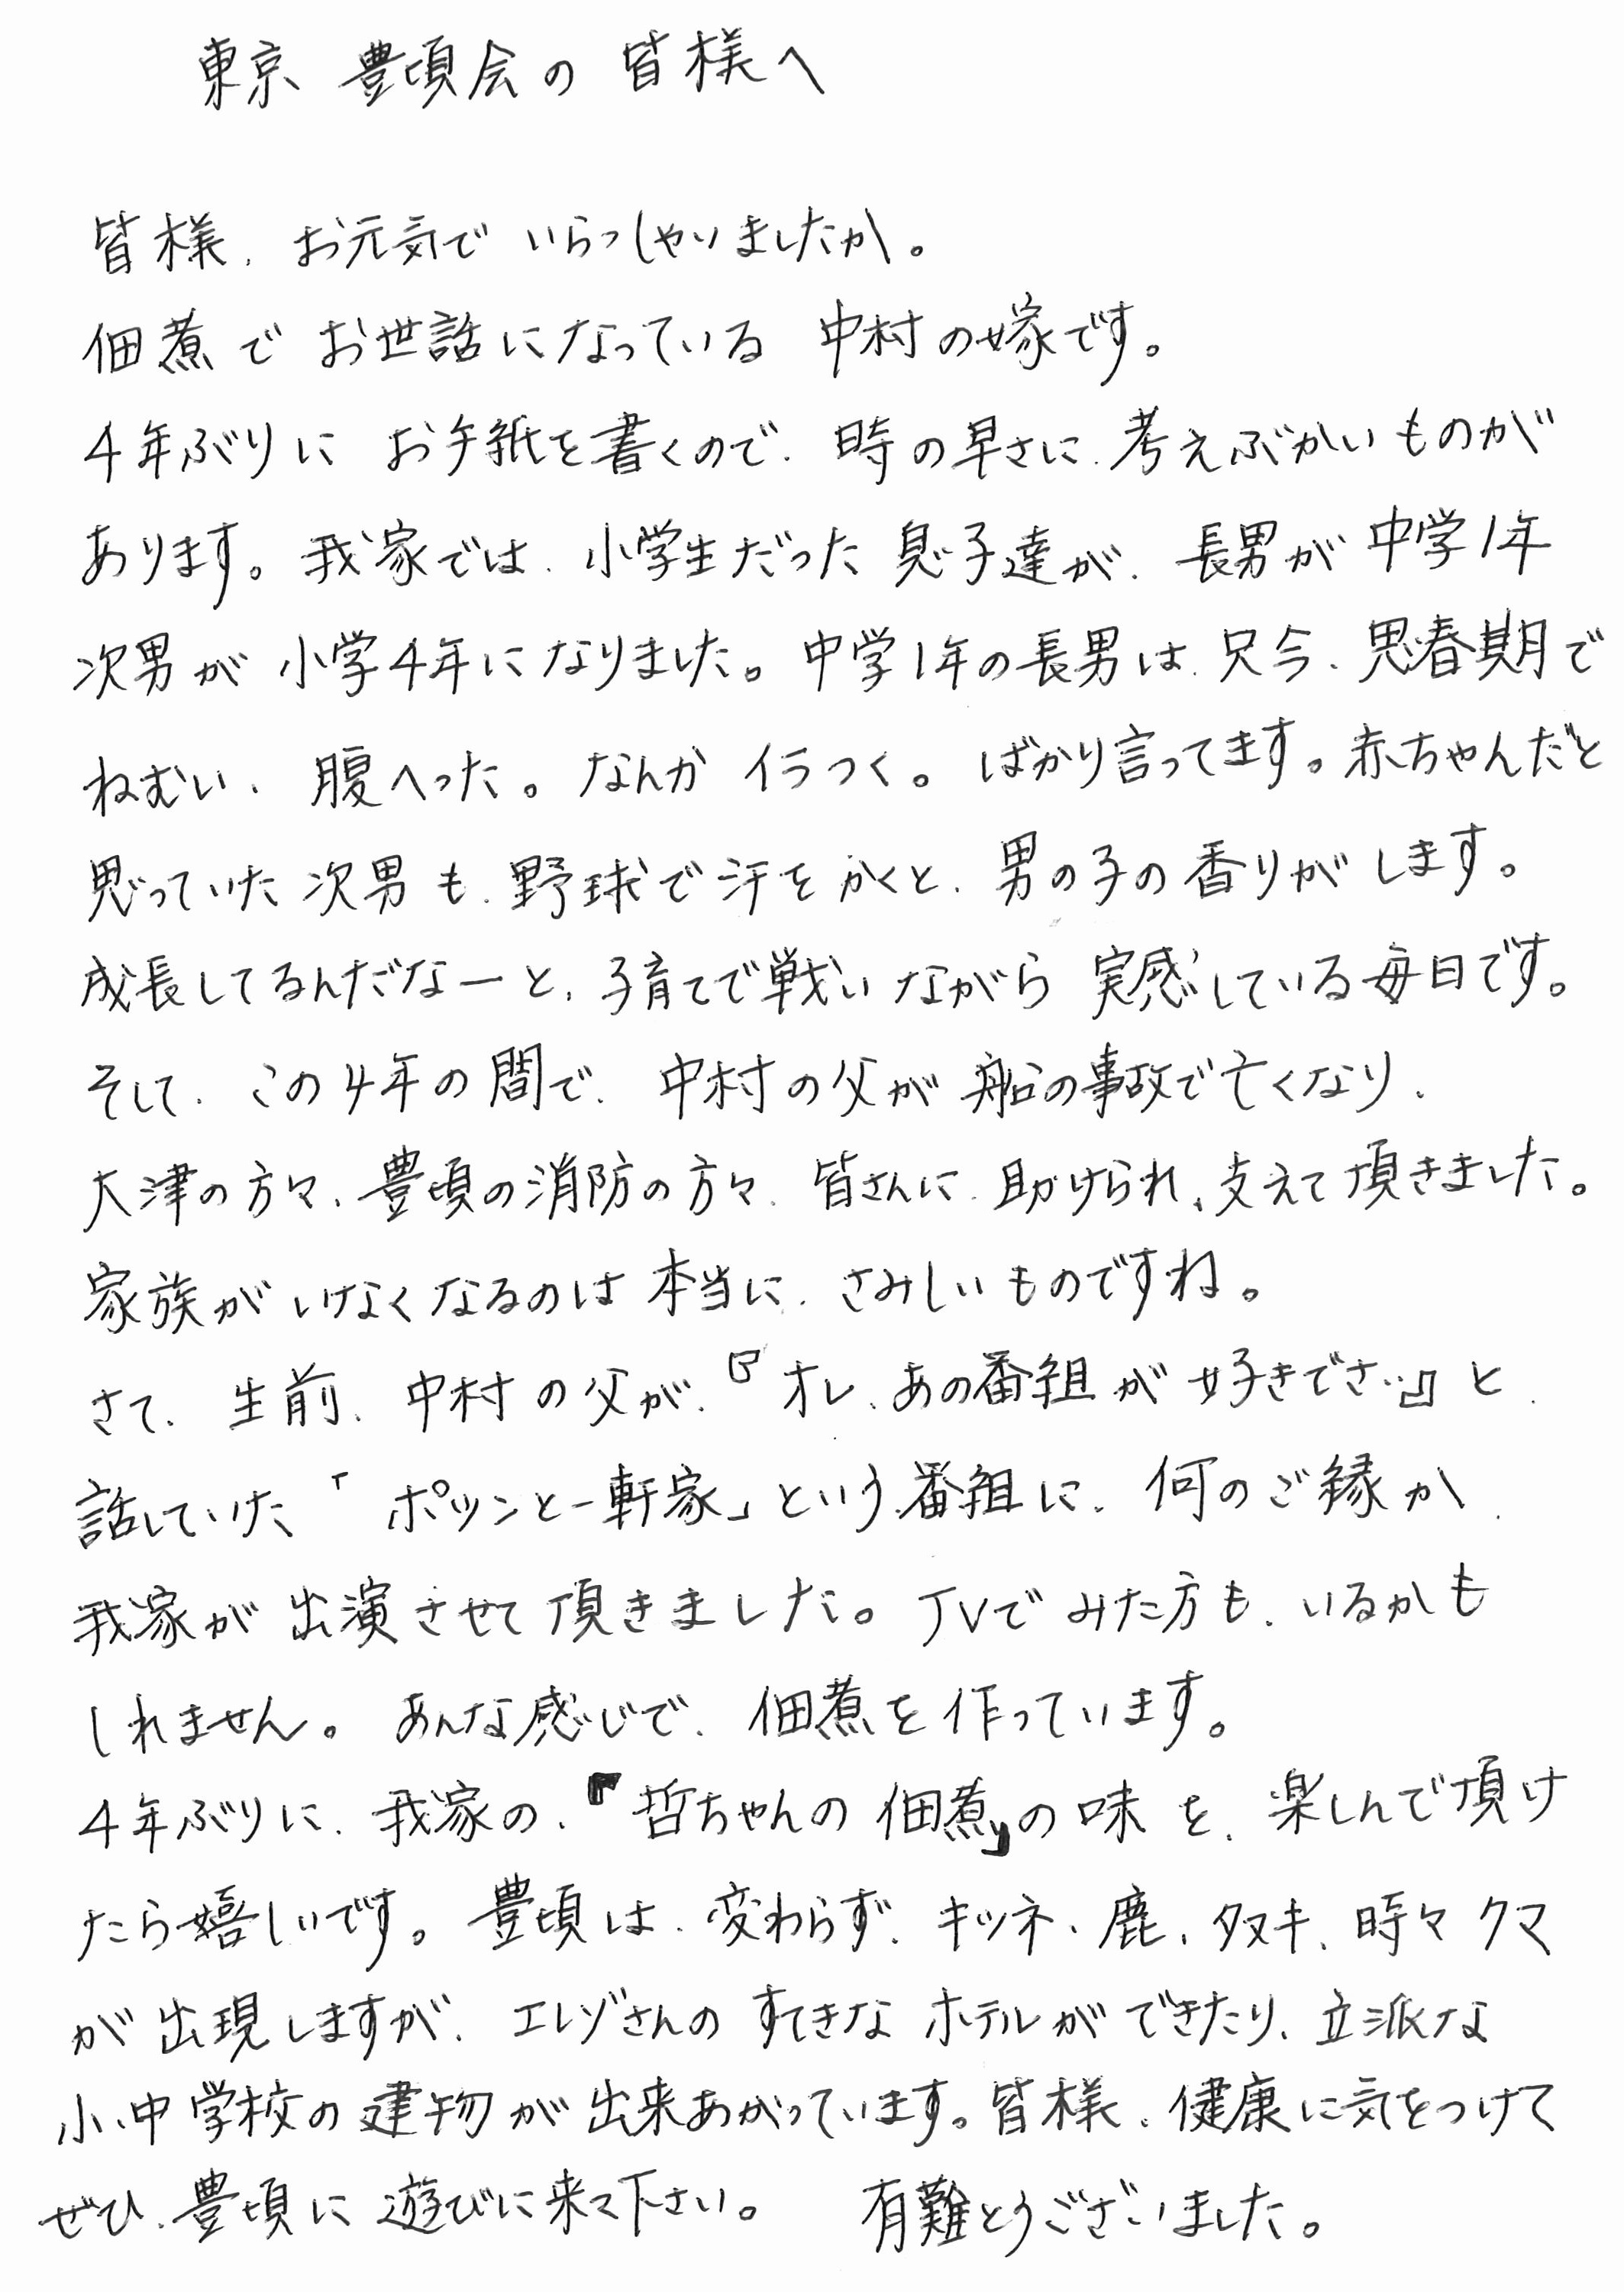 東京 豊頃会の皆様へ
皆様、お元気でいらっしゃいましたか。
佃煮でお世話になっている 中村の嫁です。
4年ぶりに お手紙を書くので、時の早さに、考えぶかいものが
あります。我家では、小学生だった息子達が、長男が中学1年
次男が 小学4年になりました。中学1年の長男は、只今、思春期で
ねむい、腹へった。なんか イラつく。ばかり言ってます。赤ちゃんだと
思っていた 次男も、野球で汗をかくと、男の子の香りがします。
成長してるんだなーと、子育てで戦いながら 実感している毎日です。
そして、この4年の間で、中村の父が 船の事故で亡くなり、
大津の方々、豊頃の消防の方々、皆さんに、助けられ、支えて頂きました。
家族がいなくなるのは本当に、さみしいものですね。
さて、生前、中村の父が、『オレ、あの番組が好きでさ…』と、
話していた「ポツンと一軒家」という番組に、何のご縁か、
我家が 出演させて頂きました。TVでみた方も、いるかも
しれません。あんな感じで、佃煮を作っています。
4年ぶりに、我家の、『哲ちゃんの佃煮』の味を、楽しんで頂け
たら嬉しいです。豊頃は、変わらず、キツネ、鹿、タヌキ、時々クマ
が出現しますが、エレゾさんの すてきな ホテルができたり、立派な
小、中学校の建物が出来あがっています。皆様、健康に気をつけて
ぜひ、豊頃に遊びに来て下さい。 有難とうございました。